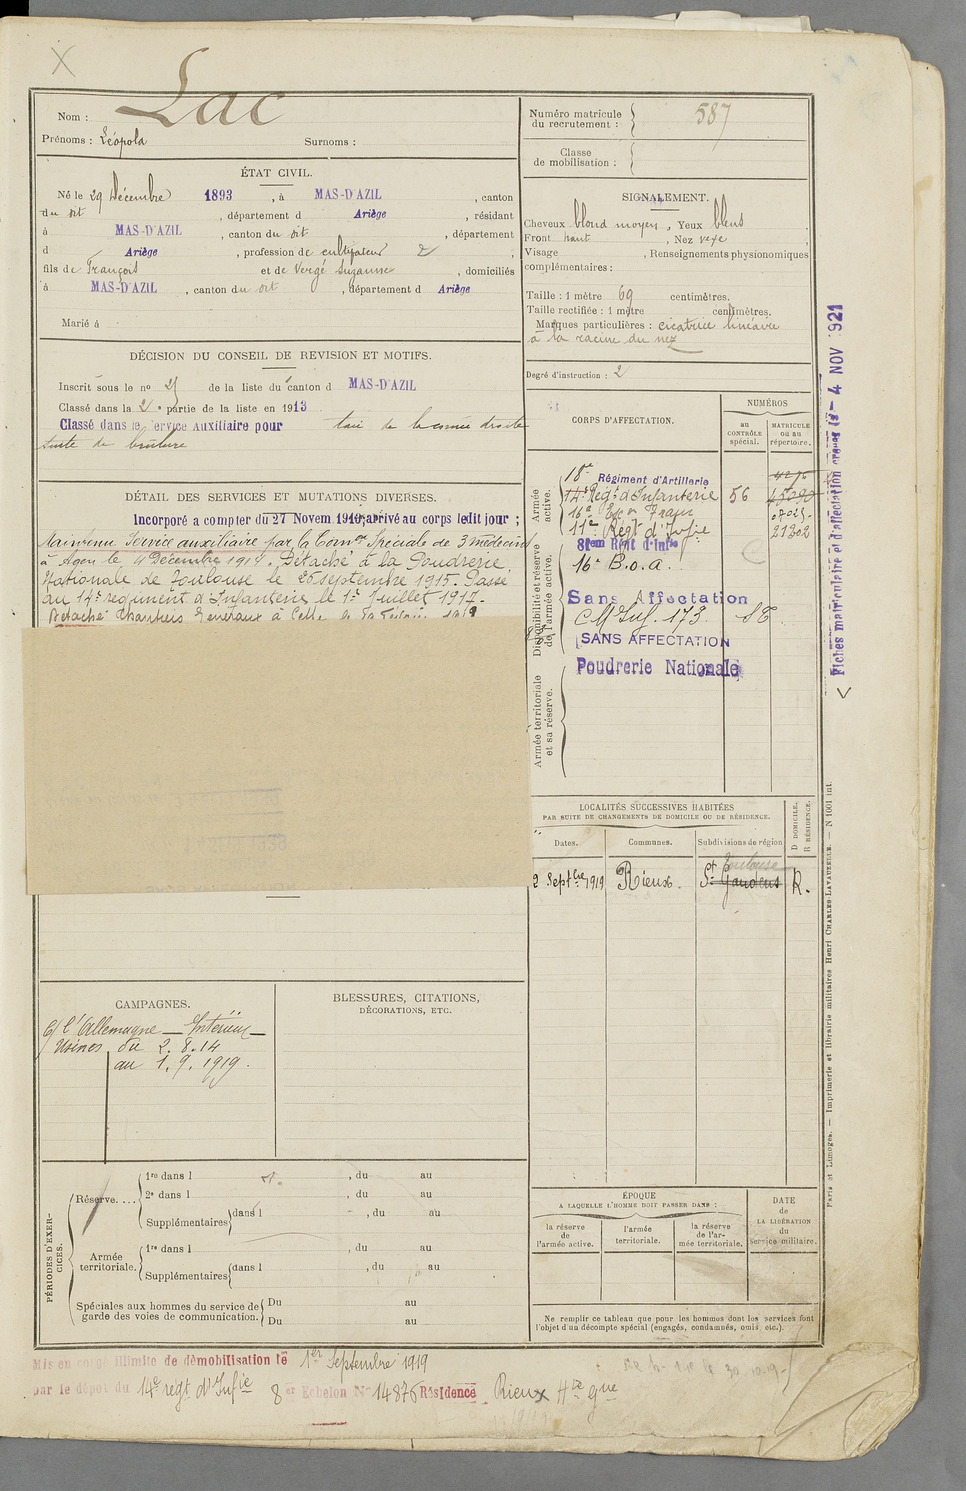 Nom : Lac
Prénoms : Léopold Surnoms :
ÉTAT CIVIL.
Né le 29 Décembre 1893, à MAS-D'AZIL, canton
du dit, département d Ariège, résidant
à MAS-D'AZIL, canton du dit, département
d Ariège, profession de cultivateur
fils de François et de Vergé Suzanne, domiciliés
à MAS-D'AZIL, canton du dit, département d Ariège
Marié à
DÉCISION DU CONSEIL DE REVISION ET MOTIFS.
Inscrit sous le no 25 de la liste du canton d MAS-D'AZIL
Classé dans la 2e partie de la liste en 1913
Classé dans le Service Auxiliaire pour taie de la cornée droite
suite de brûlure
DÉTAIL DES SERVICES ET MUTATIONS DIVERSES.
Incorporé a compter du 27 Novem. arrivé au corps ledit jour ;
Maintenu Service auxiliaire par la Comon Spéciale de 3 médecins
à Agen le 9 Décembre 1914. Détaché à la Poudrerie
Nationale de Toulouse le 26 septembre 1915. Passé
au 14e régiment d'Infanterie le 1er Juillet 1917.
Détaché Chantiers
CAMPAGNES.
C/ l'Allemagne — Intérieur —
Usines du 2.8.14
au 1.9.1919.
BLESSURES, CITATIONS,
DÉCORATIONS, ETC.
PÉRIODES D'EXERCICES.
Réserve....
1re dans l , du au
2e dans l , du au
Supplémentaires dans l , du au
Armée
territoriale.
1re dans l , du au
Supplémentaires dans l , du au
Spéciales aux hommes du service de
garde des voies de communication.
Du au
Du au
Mis en congé illimité de démobilisation le 1er Septembre 1919
par le dépôt du 14e régt d'Infie 8er Echelon No 14876 Résidence Rieux Hte Gne
Numéro matricule
du recrutement : 587
Classe
de mobilisation :
SIGNALEMENT.
Cheveux blond moyen, Yeux bleus
Front haut, Nez vexe
Visage , Renseignements physionomiques
complémentaires :
Taille : 1 mètre 69 centimètres.
Taille rectifiée : 1 mètre centimètres.
Marques particulières : cicatrice linéaire
à la racine du nez
Degré d'instruction : 2
CORPS D'AFFECTATION.
NUMÉROS
au
CONTRÔLE
spécial.
MATRICULE
ou au
répertoire.
Armée
active.
18e Régiment d'Artillerie
14e Régt d'Infanterie 56
11e Regt d'Infie 21202
Disponibilité et réserve
de l'armée active.
81em Rgt d'infie
16e B.o.a.
Sans Affectation
C M Inf. 173
SANS AFFECTATION
Poudrerie Nationale
Armée territoriale
et sa réserve.
LOCALITÉS SUCCESSIVES HABITÉES
PAR SUITE DE CHANGEMENTS DE DOMICILE OU DE RÉSIDENCE.
Dates.
Communes.
Subdivisions de région
D DOMICILE.
R RÉSIDENCE.
Toulouse
2 Septbre 1919 Rieux. St Gaudens R.
ÉPOQUE
A LAQUELLE L'HOMME DOIT PASSER DANS :
la réserve
de
l'armée active.
l'armée
territoriale.
la réserve
de l'ar-
mée territoriale.
DATE
de
LA LIBÉRATION
du
service militaire.
Ne remplir ce tableau que pour les hommes dont les services font
l'objet d'un décompte spécial (engagés, condamnés, omis, etc.).
Fiches matriculaire et d'affectation créées le - 4 NOV 1921
Paris et Limoges. — Imprimerie et librairie militaires Henri CHARLES-LAVAUZELLE. — N 1001 int.